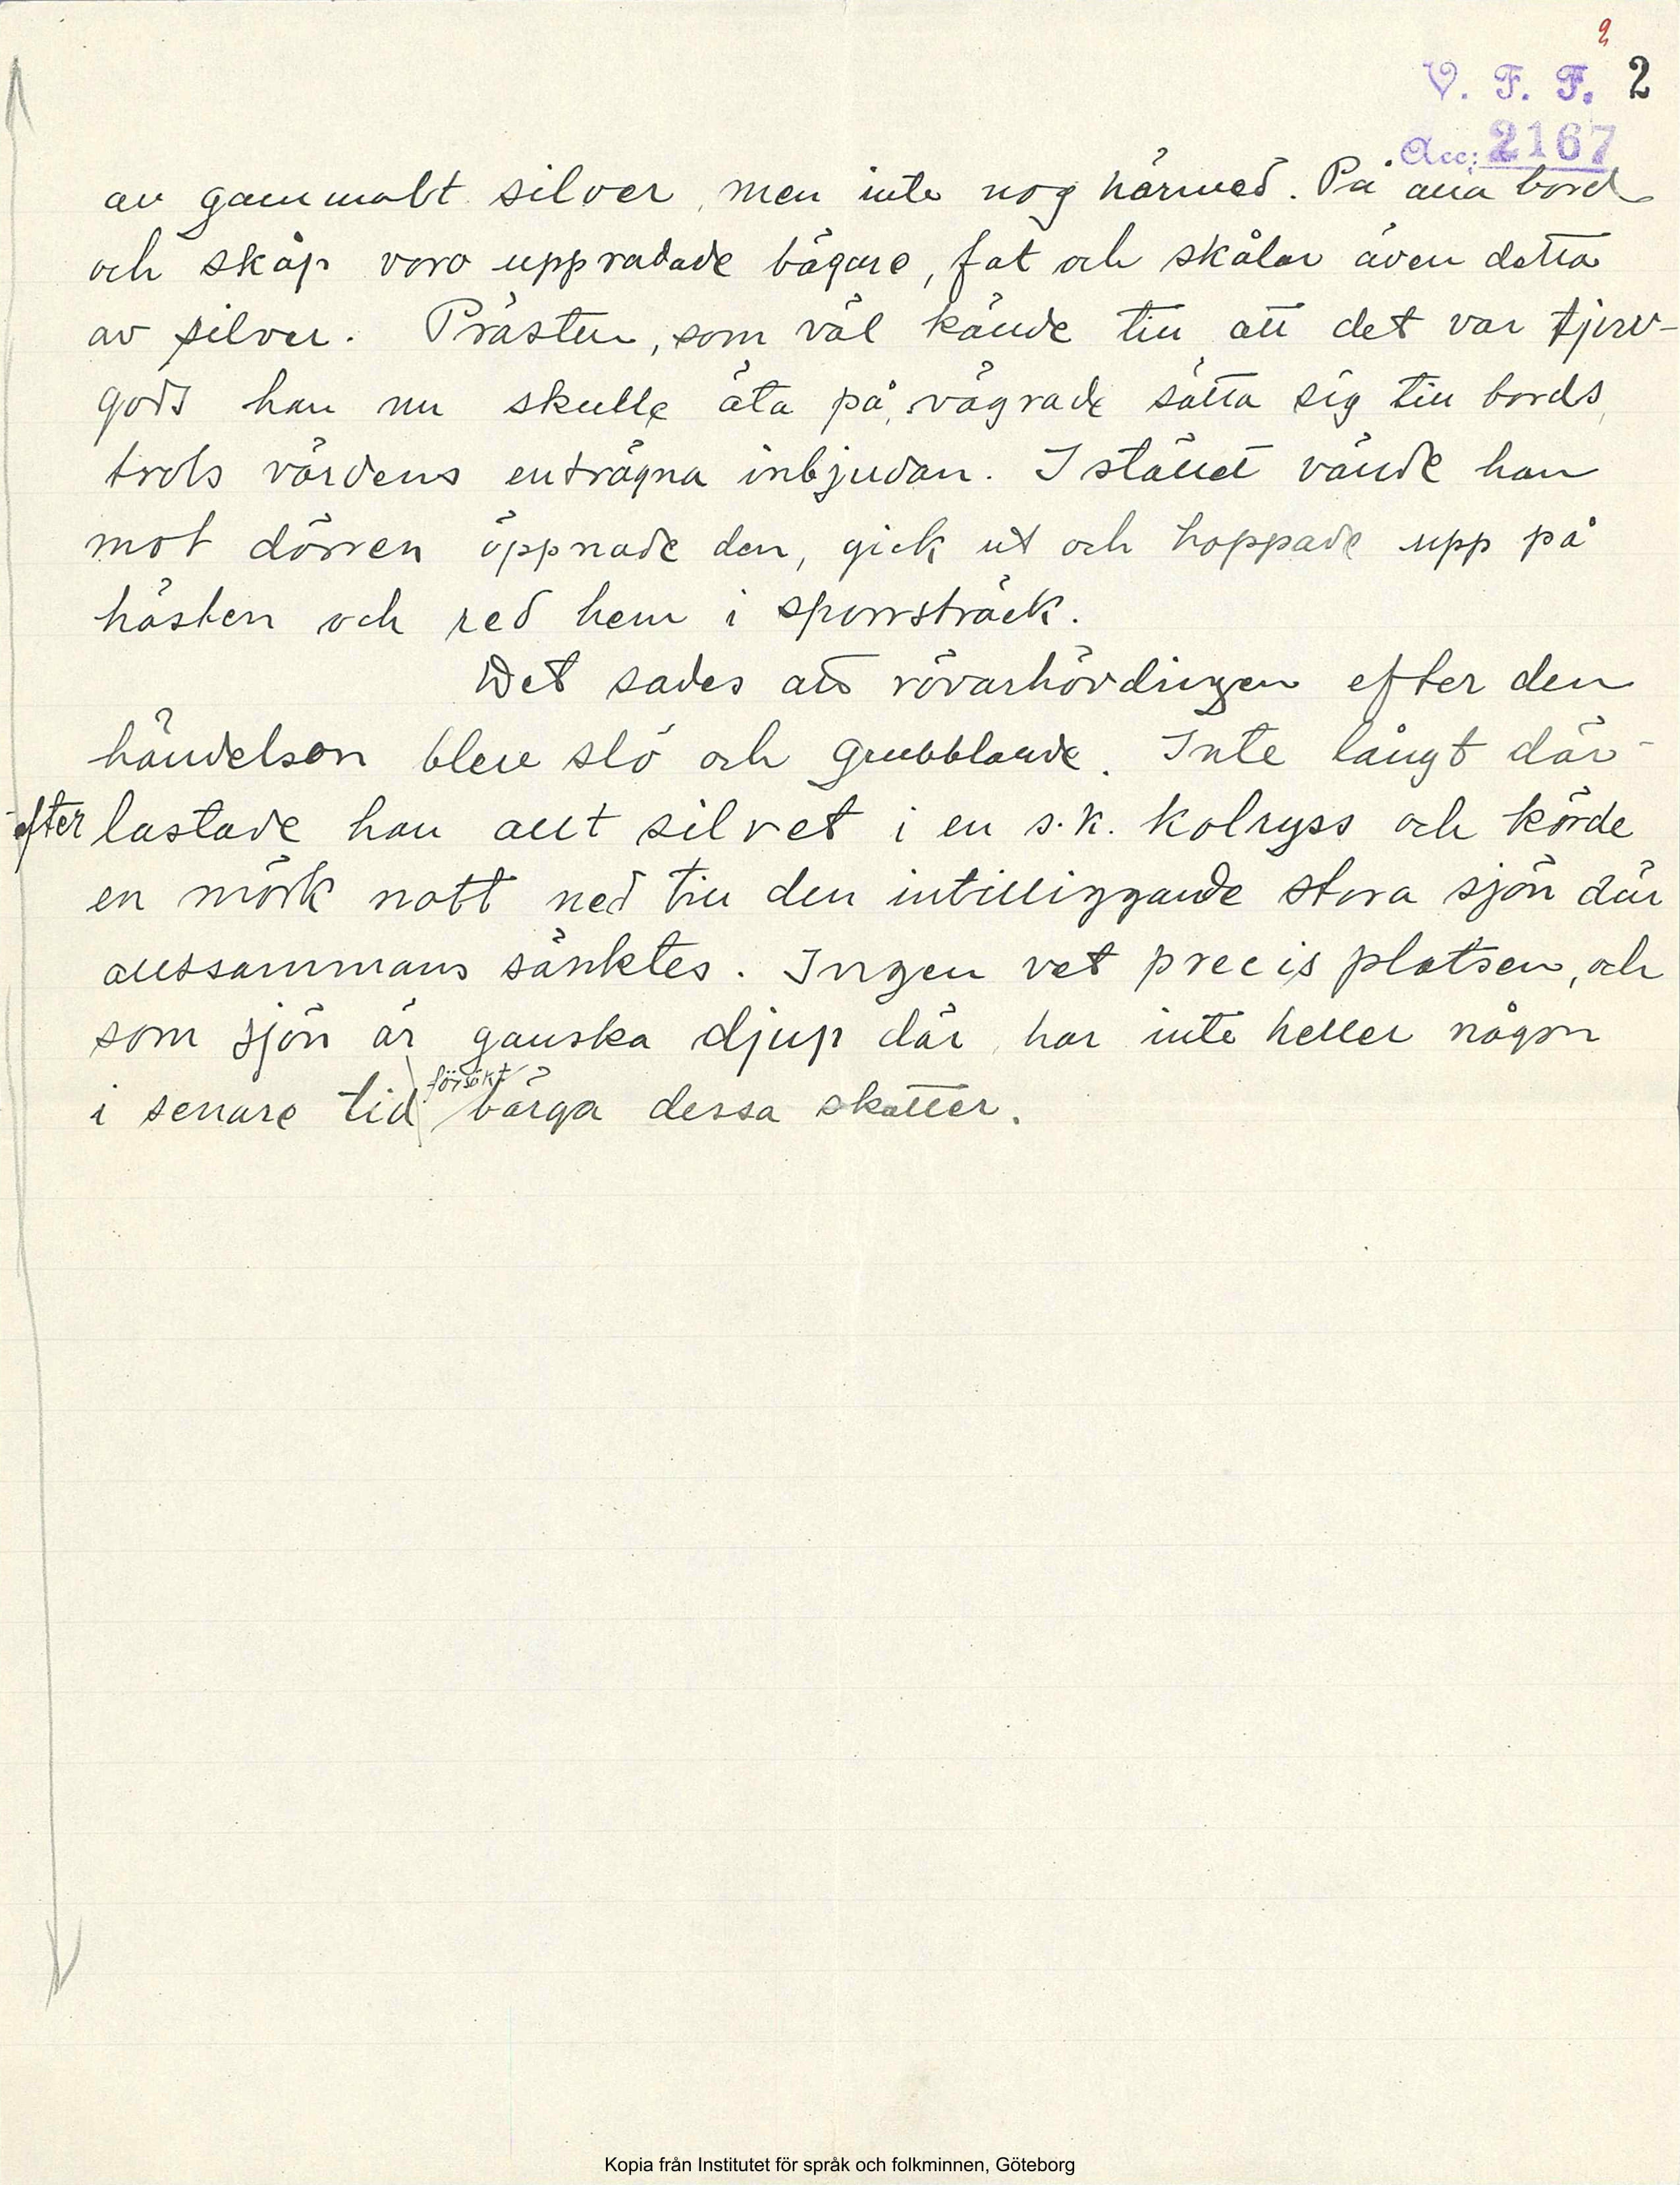 2
V. F. F. 2
Acc: 2167
av gammalt silver, men inte nog härmed. På alla bord
och skåp voro uppradade bägare, fat och skålar även detta
av silver. Prästen, som väl kände till att det var tjuv-
gods han nu skulle äta på, vägrade sätta sig till bords,
trots värdens enträgna inbjudan. I stället vände han
mot dörren öppnade den, gick ut och hoppade upp på
hästen och red hem i sporrsträck.
Det sades att rövarhövdingen efter den
händelsen blev slö och grubblande. Inte långt där-
efter lastade han allt silvret i en s.k. kolryss och körde
en mörk natt ned till den intilliggande stora sjön där
alltsammans sänktes. Ingen vet precis platsen, och
som sjön är ganska djup där, har inte heller någon
i senare tid försökt bärga dessa skatter.
Kopia från Institutet för språk och folkminnen, Göteborg